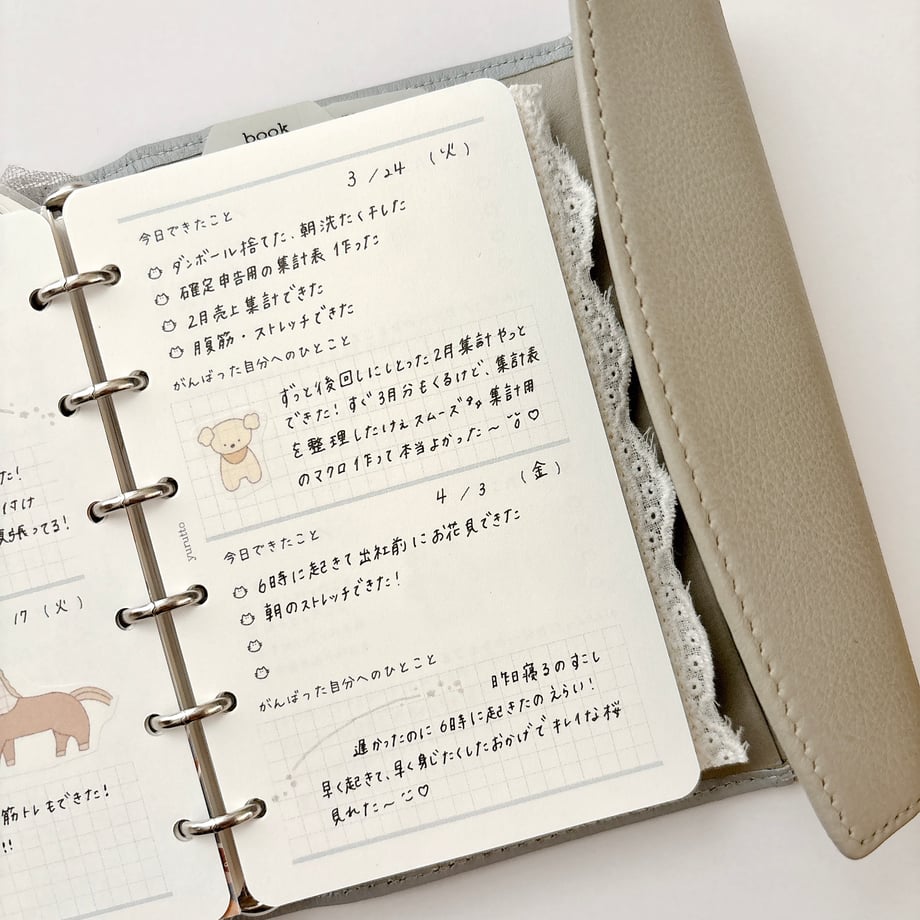 book
3/24 (火)
今日できたこと
ダンボール捨てた、朝洗たく干した
確定申告用の集計表 作った
2月売上集計できた
腹筋・ストレッチできた
がんばった自分へのひとこと
ずっと後回しにしとった2月集計やっと
できた!すぐ3月分もくるけど、集計表
を整理したけぇスムーズ 集計用
のマクロ作って本当よかった〜♡
yunuto
4/3 (金)
今日できたこと
6時に起きて出社前にお花見できた
朝のストレッチできた!
がんばった自分へのひとこと
昨日寝るのすこし
遅かったのに6時に起きたのえらい!
早く起きて、早く身じたくしたおかげでキレイな桜
見れた〜♡
た!
付け
張ってる!
17 (火)
筋トレもできた!
!!